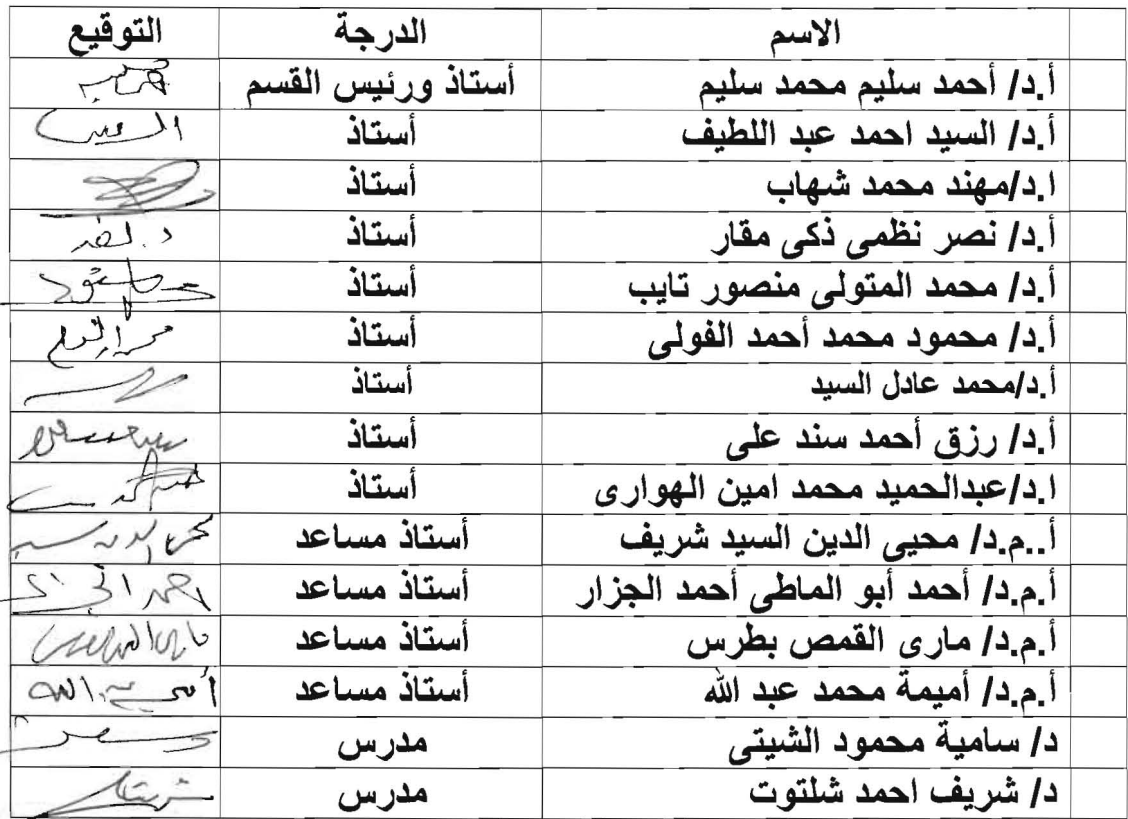 الاسم الدرجة التوقيع
أ.د/ أحمد سليم محمد سليم أستاذ ورئيس القسم
أ.د/ السيد احمد عبد اللطيف أستاذ
ا.د/مهند محمد شهاب أستاذ
أ.د/ نصر نظمى ذكى مقار أستاذ
أ.د/ محمد المتولى منصور تايب أستاذ
أ.د/ محمود محمد أحمد الفولى أستاذ
أ.د/محمد عادل السيد أستاذ
أ.د/ رزق أحمد سند على أستاذ
ا.د/عبدالحميد محمد امين الهوارى أستاذ
أ..م.د/ محيى الدين السيد شريف أستاذ مساعد
أ.م.د/ أحمد أبو الماطى أحمد الجزار أستاذ مساعد
أ.م.د/ مارى القمص بطرس أستاذ مساعد
أ.م.د/ أميمة محمد عبد الله أستاذ مساعد
د/ سامية محمود الشيتى مدرس
د/ شريف احمد شلتوت مدرس